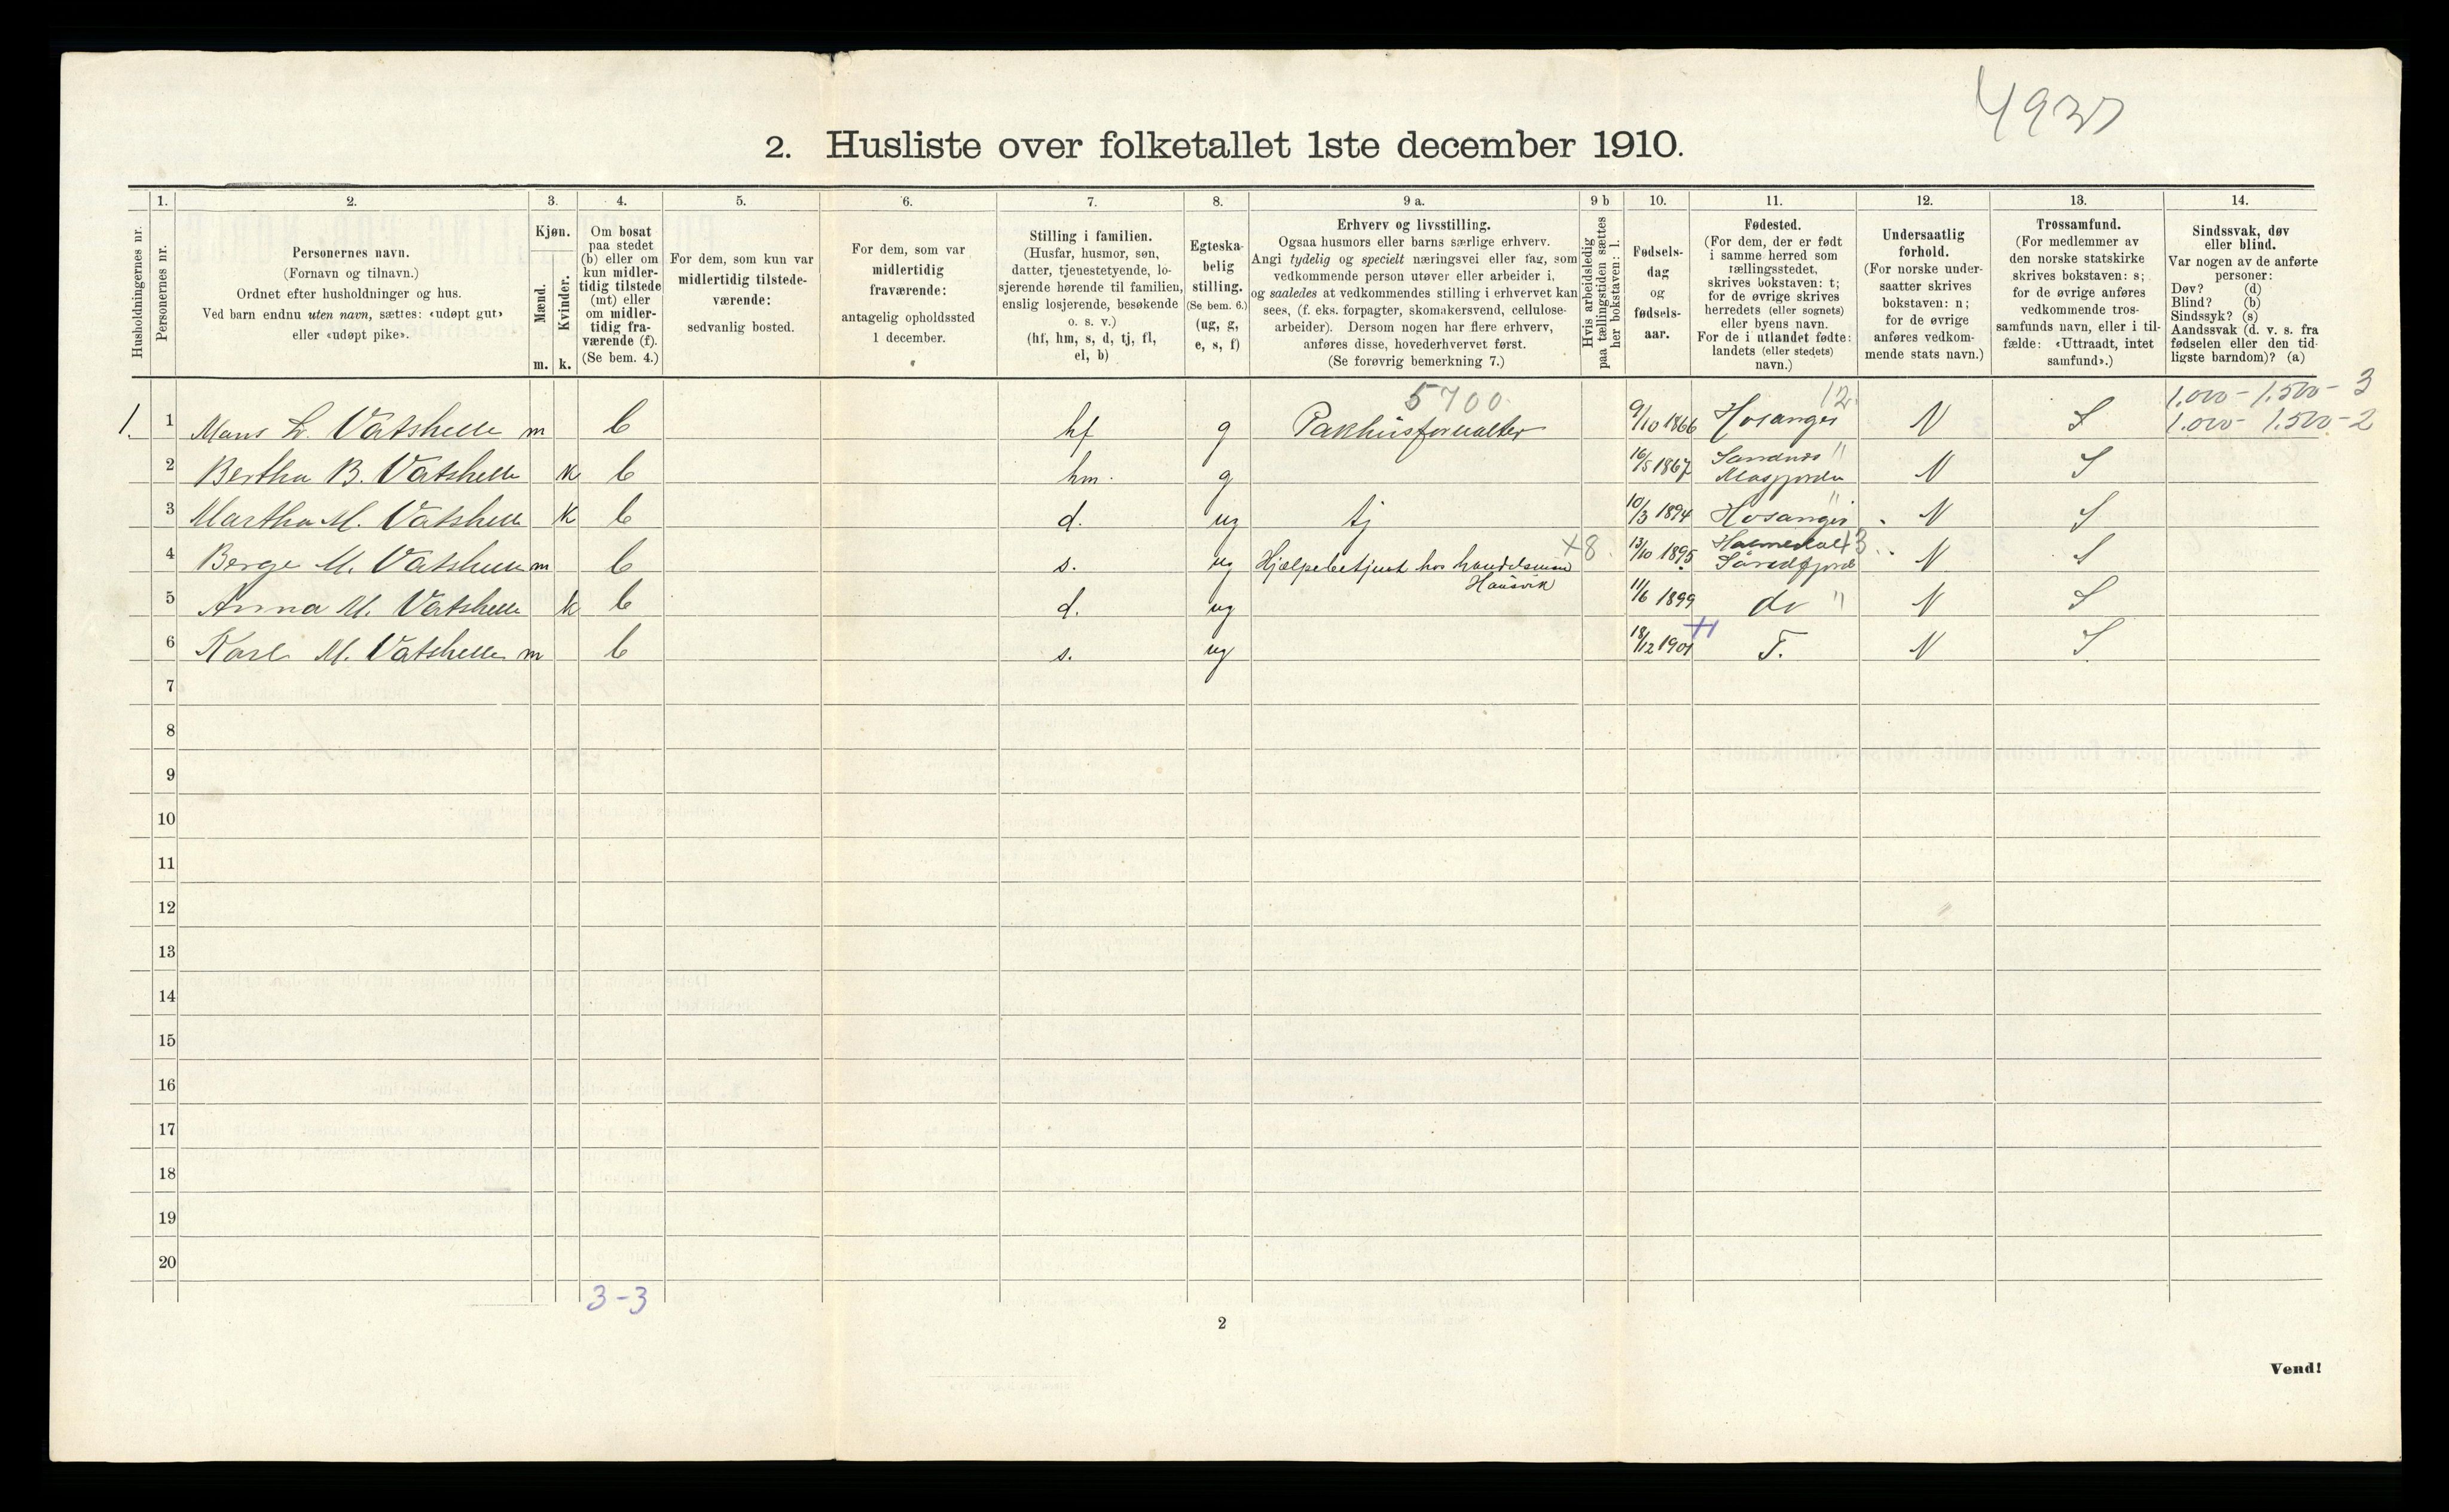 4937
2. Husliste over folketallet 1ste december 1910.
Husholdningernes nr.
1.
Personernes nr.
2.
Personernes navn.
(Fornavn og tilnavn.)
Ordnet efter husholdninger og hus.
Ved barn endnu uten navn, sættes: «udøpt gut»
eller «udøpt pike».
3.
Kjøn.
Mænd.
Kvinder.
m. k.
4.
Om bosat
paa stedet
(b) eller om
kun midler-
tidig tilstede
(mt) eller
om midler-
tidig fra-
værende (f).
(Se bem. 4.)
5.
For dem, som kun var
midlertidig tilstede-
værende:
sedvanlig bosted.
6.
For dem, som var
midlertidig
fraværende:
antagelig opholdssted
1 december.
7.
Stilling i familien.
(Husfar, husmor, søn,
datter, tjenestetyende, lo-
sjerende hørende til familien,
enslig losjerende, besøkende
o. s. v.)
(hf, hm, s, d, tj, fl,
el, b)
8.
Egteska-
belig
stilling.
(Se bem. 6.)
(ug, g,
e, s, f)
9 a.
Erhverv og livsstilling.
Ogsaa husmors eller barns særlige erhverv.
Angi tydelig og specielt næringsvei eller fag, som
vedkommende person utøver eller arbeider i,
og saaledes at vedkommendes stilling i erhvervet kan
sees, (f. eks. forpagter, skomakersvend, cellulose-
arbeider). Dersom nogen har flere erhverv,
anføres disse, hovederhvervet først.
(Se forøvrig bemerkning 7.)
9 b
Hvis arbeidsledig
paa tællingstiden sættes
her bokstaven: l.
10.
Fødsels-
dag
og
fødsels-
aar.
11.
Fødested.
(For dem, der er født
i samme herred som
tællingsstedet,
skrives bokstaven: t;
for de øvrige skrives
herredets (eller sognets)
eller byens navn.
For de i utlandet fødte:
landets (eller stedets)
navn.)
12.
Undersaatlig
forhold.
(For norske under-
saatter skrives
bokstaven: n;
for de øvrige
anføres vedkom-
mende stats navn.)
13.
Trossamfund.
(For medlemmer av
den norske statskirke
skrives bokstaven: s;
for de øvrige anføres
vedkommende tros-
samfunds navn, eller i til-
fælde: «Uttraadt, intet
samfund».)
14.
Sindssvak, døv
eller blind.
Var nogen av de anførte
personer:
Døv? (d)
Blind? (b)
Sindssyk? (s)
Aandssvak (d. v. s. fra
fødselen eller den tid-
ligste barndom)? (a)
5700 12 1.000 - 1.500 - 3
1. 1 Mans L. Vatshelle m b hf g Pakhusforvalter 9/10 1866 Hosanger N S 1.000 - 1.500 - 2
2 Bertha B. Vatshelle k b hm. g 16/5 1867 Sandnes " Masfjorden N S
3 Martha M. Vatshelle k b d. ug tj 10/3 1894 Hosanger " N S
4 Berge M. Vatshelle m b s. ug Hjælpebetjent hos handelsmand Hausvik X8 13/10 1895 13 N S
5 Anna M. Vatshelle k b d. ug 11/6 1899 do " N S
6 Karl M. Vatshelle m b s. ug 18/12 1901 T. N S
7
8
9
10
11
12
13
14
15
16
17
18
19
20
3-3
2
Vend!